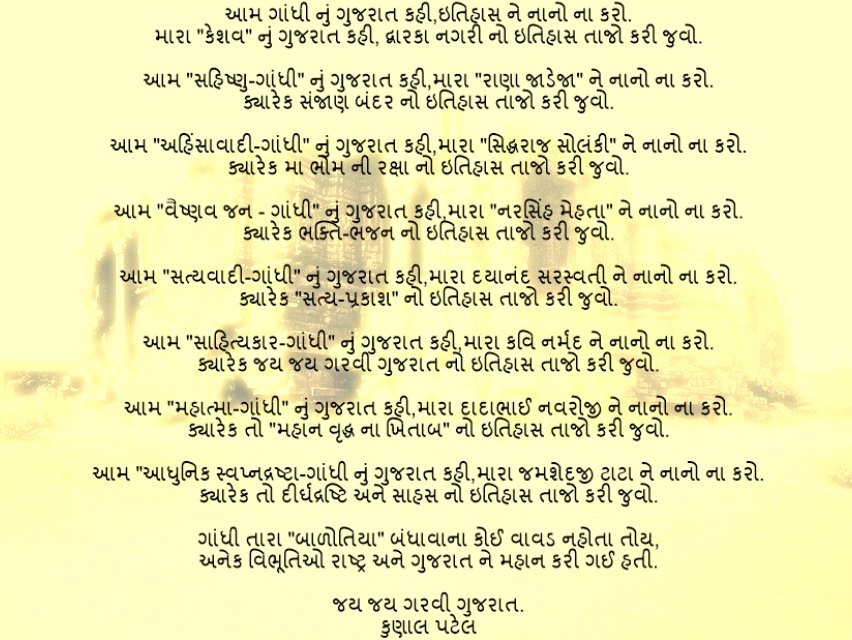 આમ ગાંધી નું ગુજરાત કહી,ઇતિહાસ ને નાનો ના કરો.
મારા "કેશવ" નું ગુજરાત કહી, દ્વારકા નગરી નો ઇતિહાસ તાજો કરી જુવો.
આમ "સહિષ્ણુ-ગાંધી" નું ગુજરાત કહી,મારા "રાણા જાડેજા" ને નાનો ના કરો.
ક્યારેક સંજાણ બંદર નો ઇતિહાસ તાજો કરી જુવો.
આમ "અહિંસાવાદી-ગાંધી" નું ગુજરાત કહી,મારા "સિદ્ધરાજ સોલંકી" ને નાનો ના કરો.
ક્યારેક મા ભોમ ની રક્ષા નો ઇતિહાસ તાજો કરી જુવો.
આમ "વૈષ્ણવ જન - ગાંધી" નું ગુજરાત કહી,મારા "નરસિંહ મેહતા" ને નાનો ના કરો.
ક્યારેક ભક્તિ-ભજન નો ઇતિહાસ તાજો કરી જુવો.
આમ "સત્યવાદી-ગાંધી" નું ગુજરાત કહી,મારા દયાનંદ સરસ્વતી ને નાનો ના કરો.
ક્યારેક "સત્ય-પ્રકાશ" નો ઇતિહાસ તાજો કરી જુવો.
આમ "સાહિત્યકાર-ગાંધી" નું ગુજરાત કહી,મારા કવિ નર્મદ ને નાનો ના કરો.
ક્યારેક જય જય ગરવી ગુજરાત નો ઇતિહાસ તાજો કરી જુવો.
આમ "મહાત્મા-ગાંધી" નું ગુજરાત કહી,મારા દાદાભાઈ નવરોજી ને નાનો ના કરો.
ક્યારેક તો "મહાન વૃદ્ધ ના ખિતાબ" નો ઇતિહાસ તાજો કરી જુવો.
આમ "આધુનિક સ્વપ્નદ્રષ્ટા-ગાંધી નું ગુજરાત કહી,મારા જમશેદજી ટાટા ને નાનો ના કરો.
ક્યારેક તો દીર્ઘદ્રષ્ટિ અને સાહસ નો ઇતિહાસ તાજો કરી જુવો.
ગાંધી તારા "બાળોતિયા" બંધાવાના કોઈ વાવડ નહોતા તોય,
અનેક વિભૂતિઓ રાષ્ટ્ર અને ગુજરાત ને મહાન કરી ગઈ હતી.
જય જય ગરવી ગુજરાત.
કુણાલ પટેલ